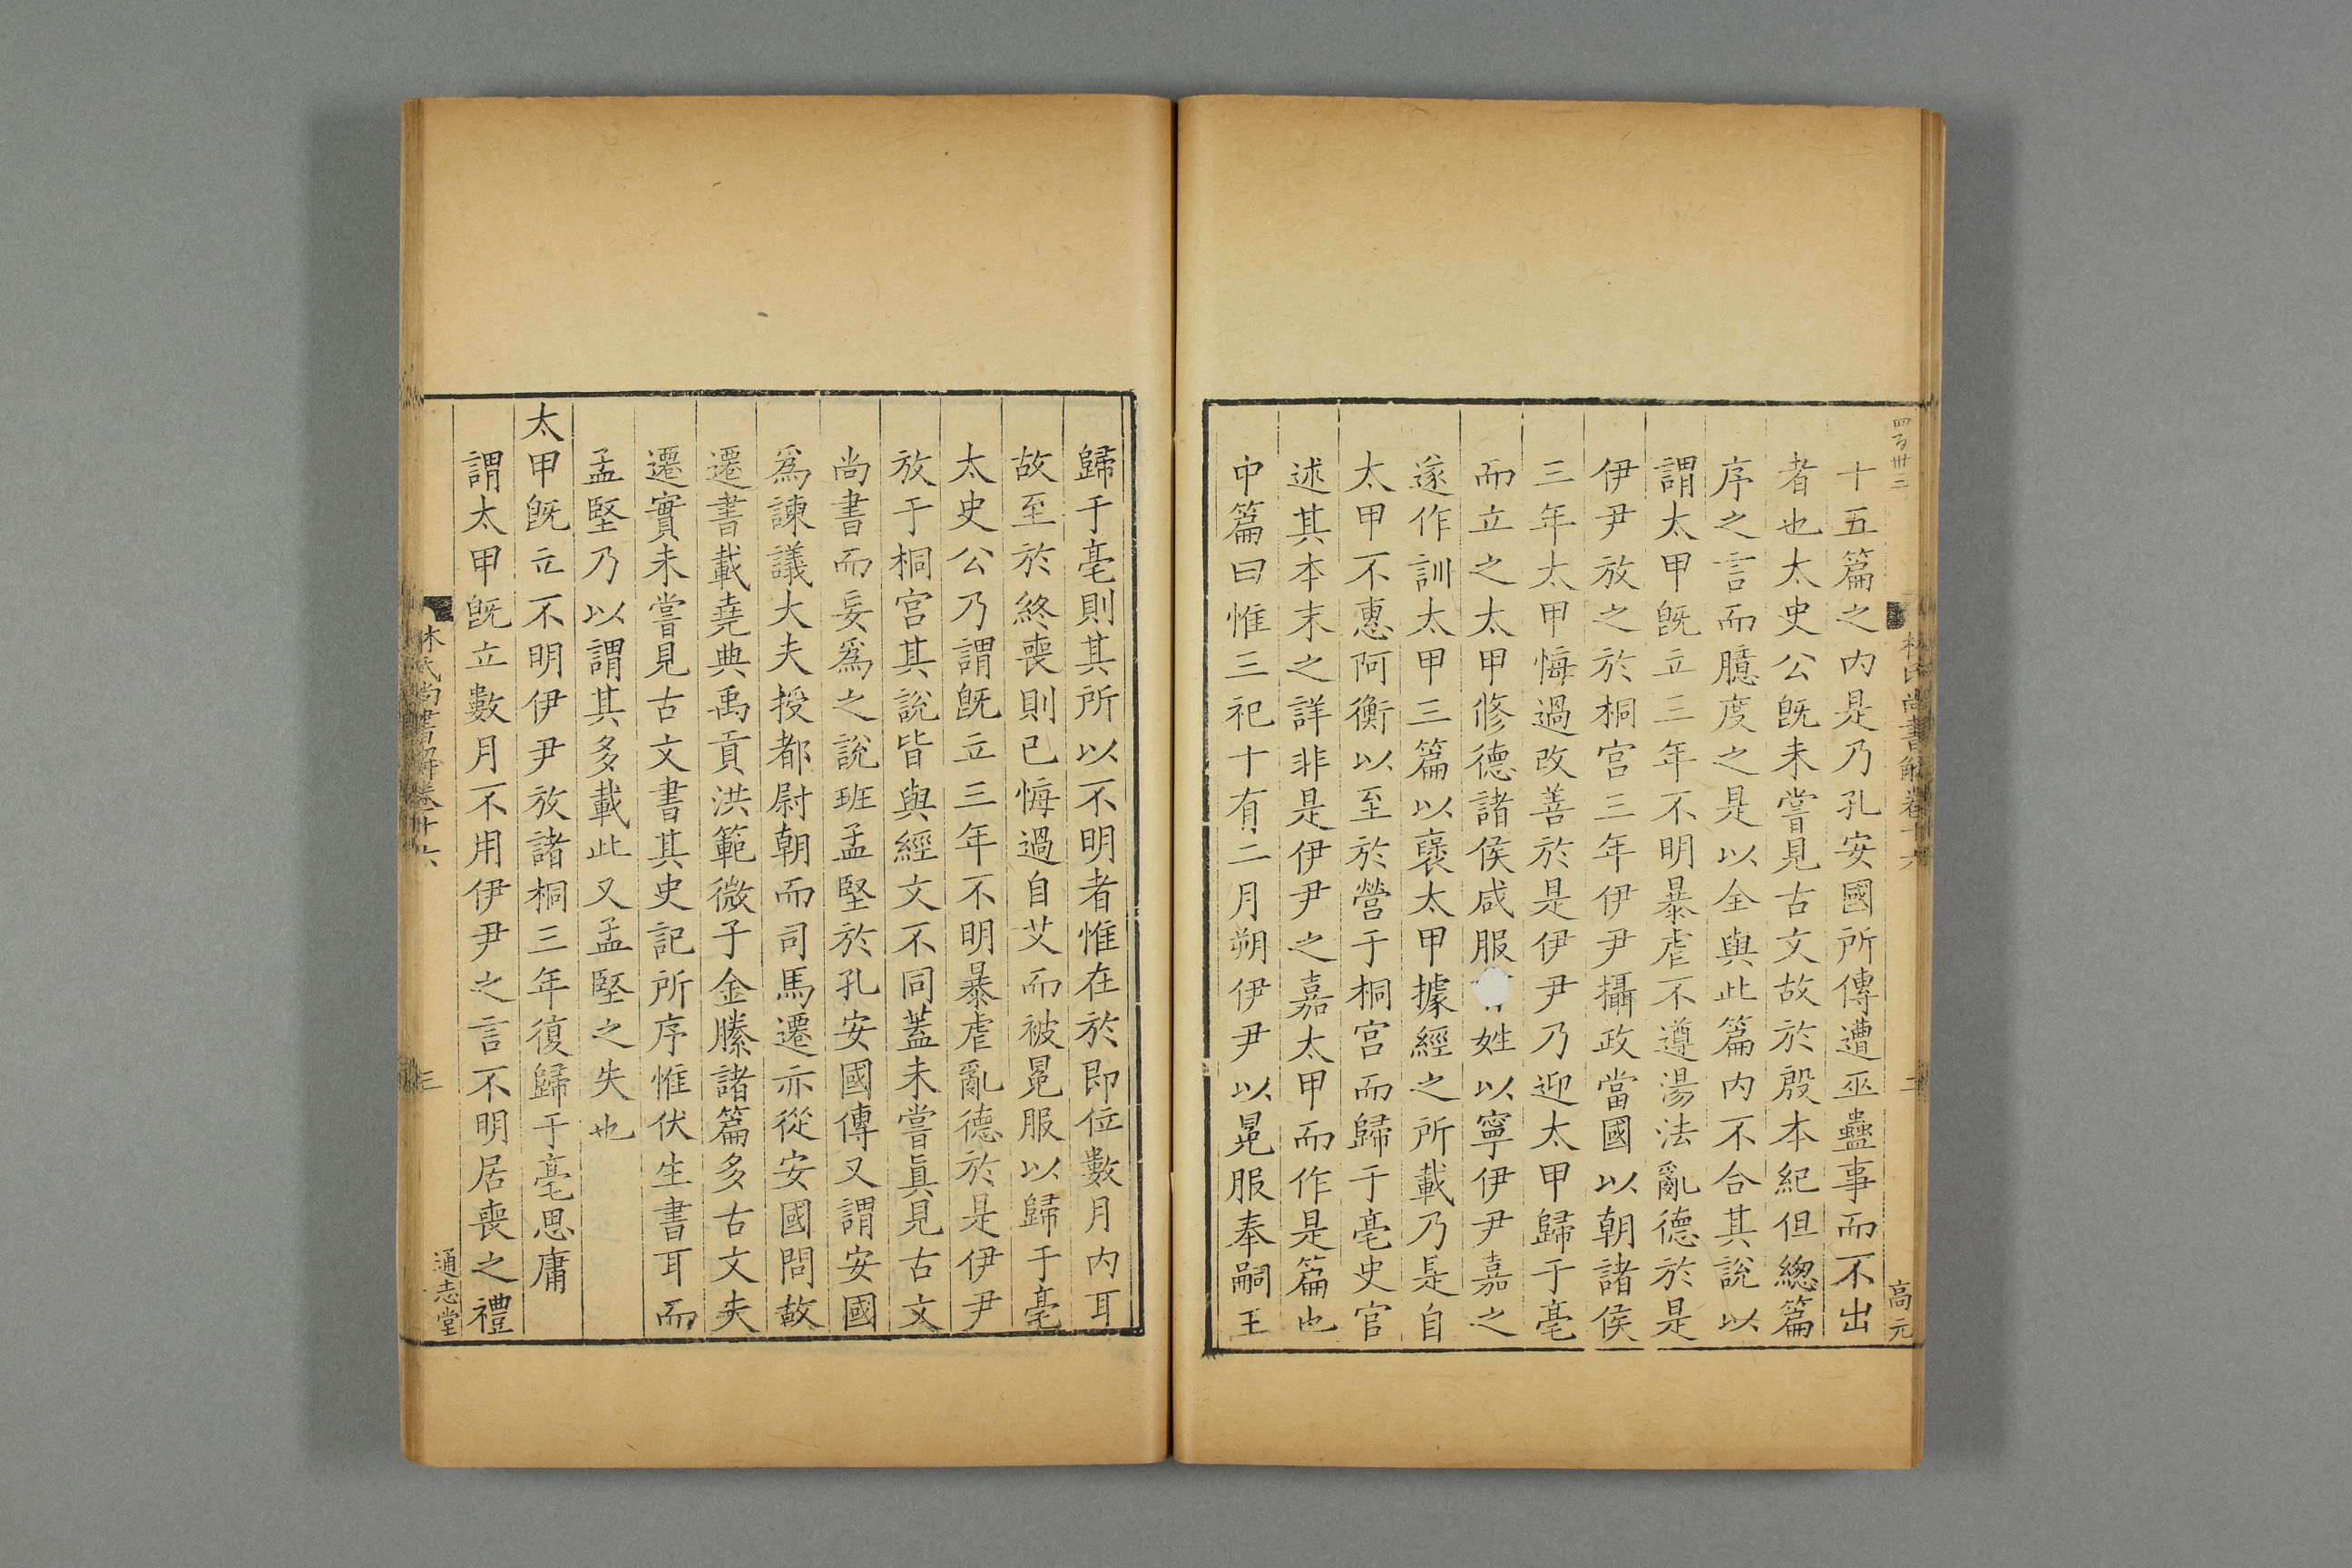 四百卅二
林氏尚書解卷十六
二
高元
十五篇之内是乃孔安國所傳遭巫蠱事而不出
者也太史公旣未嘗見古文故於殷本紀但緫篇
序之言而臆度之是以全與此篇内不合其說以
謂太甲旣立三年不明暴虐不遵湯法亂德於是
伊尹放之於桐宫三年伊尹攝政當國以朝諸侯
三年太甲悔過改善於是伊尹乃迎太甲歸于亳
而立之太甲修德諸侯咸服姓以寧伊尹嘉之
遂作訓太甲三篇以襃太甲據經之所載乃是自
太甲不惠阿衡以至於營于桐宫而歸于亳史官
述其本末之詳非是伊尹之嘉太甲而作是篇也
中篇曰惟三祀十有二月朔伊尹以冕服奉嗣王
歸于亳則其所以不明者惟在於即位數月内耳
故至於終喪則已悔過自艾而被冕服以歸于亳
太史公乃謂旣立三年不明暴虐亂德於是伊尹
放于桐宫其說皆與經文不同蓋未嘗眞見古文
尚書而妄爲之說班孟堅於孔安國傳又謂安國
爲諫議大夫授都尉朝而司馬遷亦從安國問故
遷書載堯典禹貢洪範微子金縢諸篇多古文夫
遷實未嘗見古文書其史記所序惟伏生書耳而
孟堅乃以謂其多載此又孟堅之失也
太甲旣立不明伊尹放諸桐三年復歸于亳思庸
謂太甲旣立數月不用伊尹之言不明居喪之禮
林氏尚書解卷十六
三
通志堂